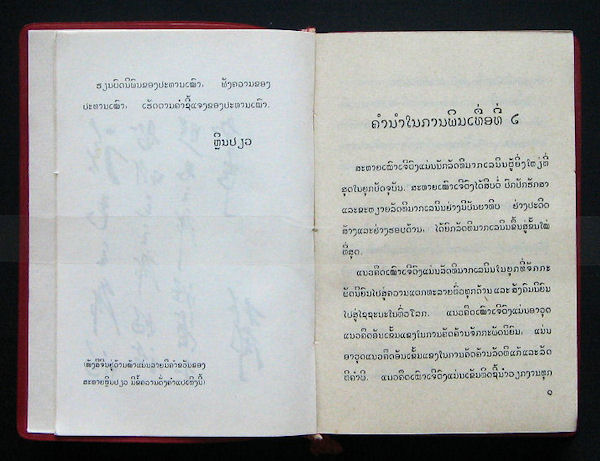 ຮຽນບົດນິພົນຂອງປະທານເໝົາ, ຟັງຄວາມຂອງ
ປະທານເໝົາ, ເຮັດຕາມຄຳຊີ້ແຈງຂອງປະທານເໝົາ.
ຫຼິນປຽວ
ສະຫາຍຫຼິນປຽວ
ຄຳນຳໃນການພິມເທື່ອທີ່
ສະຫາຍເໝົາເຈີຕົງແມ່ນນັກລັດທິມາກເລນິນຜູ້ຍິ່ງໃຫຍ່ທີ່
ສຸດໃນຍຸກປັດຈຸບັນ. ສະຫາຍເໝົາເຈີຕົງໄດ້ສືບຕໍ່ ປົກປັກຮັກສາ
ແລະຂະຫຍາຍລັດທິມາກເລນິນຢ່າງມີ ຢ່າງປະດິດ
ສ້າງແລະຢ່າງຮອບດ້ານ, ໄດ້ຍົກລັດທິມາກເລນິນຂຶ້ນສູ່ຂັ້ນໃໝ່
ທີ່ສຸດ.
ແນວຄິດເໝົາເຈີຕົງແມ່ນລັດທິມາກເລນິນໃນຍຸກທີ່ຈັກກະ
ພັດນິຍົມໄປສູ່ຄວາມແຕກຫະລາຍທົ່ວທຸກດ້ານ ແລະສັງຄົມນິຍົມ
ໄປສູ່ໄຊຊະນະໃນທົ່ວໂລກ. ແນວຄິດເໝົາເຈີຕົງແມ່ນອາວຸດ
ແນວຄິດອັນເຂັ້ມແຂງໃນການຄັດຄ້ານຈັກກະພັດນິຍົມ, ແມ່ນ
ອາວຸດແນວຄິດອັນເຂັ້ມແຂງໃນການຄັດຄ້ານລັດທິແກ້ແລະລັດ
ທິຄຳພີ. ແນວຄິດເໝົາເຈີຕົງແມ່ນເຂັມທິດຊີ້ນຳວຽກງານທຸກ
໑